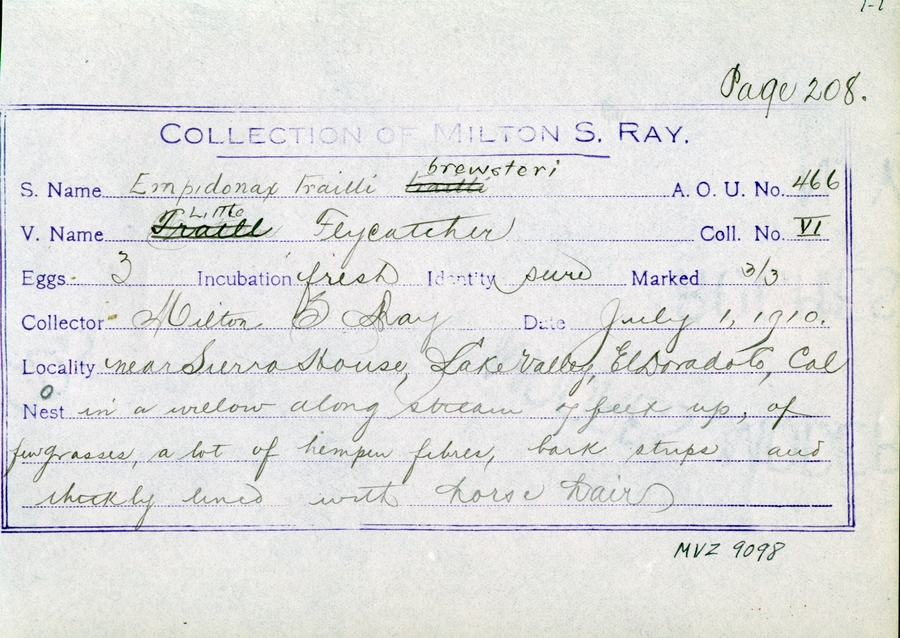 Page 208.
COLLECTION OF MILTON S. RAY.
brewsteri
S. Name Empidonax trailli trailli A. O. U. No. 466
Little
V. Name Traill Flycatcher Coll. No. VI
Eggs 3 Incubation fresh Identity sure Marked 3/3
Collector Milton S Ray Date July 1, 1910.
Locality near Sierra House, Lake Valley, El Dorado Co, Cal
Nest in a willow along stream feet up, of
few grasses, a lot of hempen fibres, bark strips and
thickly lined with horse hair
MVZ 9098